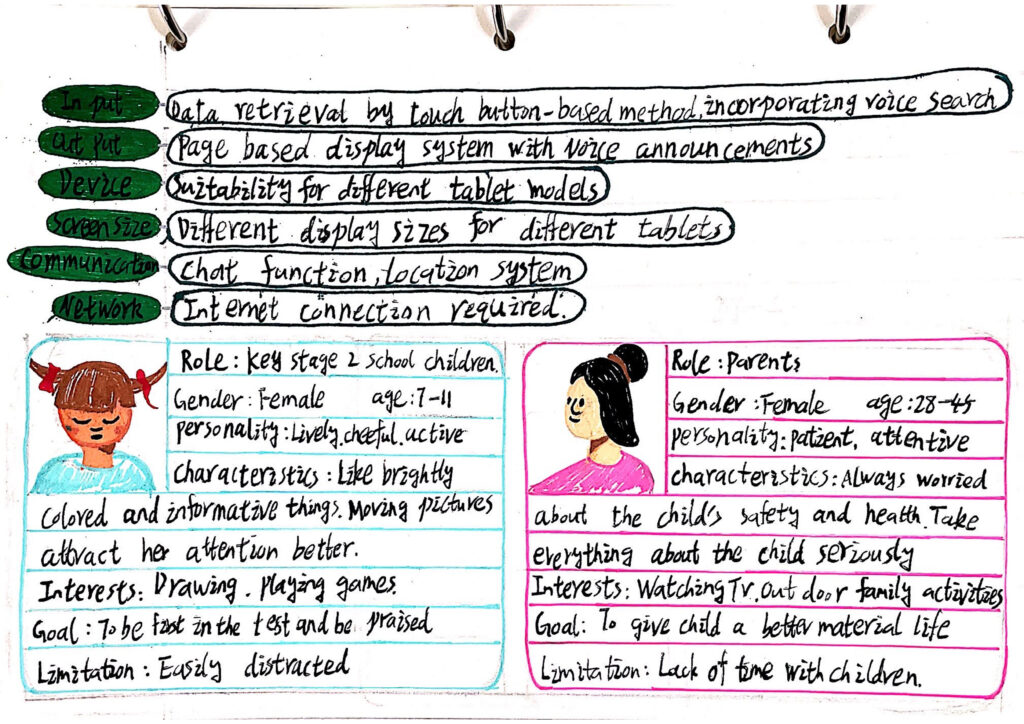 In put Data retrieval by touch button-based method, incorporating voice search
Out put Page based display system with voice announcements
Device Suitability for different tablet models
Screen size Different display sizes for different tablets
Communication Chat function, location system
Network Internet connection required.
Role: Key stage 2 school children.
Gender: Female age: 7-11
personality: Lively, cheeful. active
characteristics: Like brightly
colored and informative things. Moving pictures
attract her attention better.
Interests: Drawing. playing games.
Goal: To be first in the test and be praised
Limitation: Easily distracted
Role: Parents
Gender: Female age: 28-45
personality: patient, attentive
characteristics: Always worried
about the child's safety and heath. Take
everything about the child seriously
Interests: Watching TV. Out door family activities
Goal: To give child a better material life
Limitation: Lack of time with children.